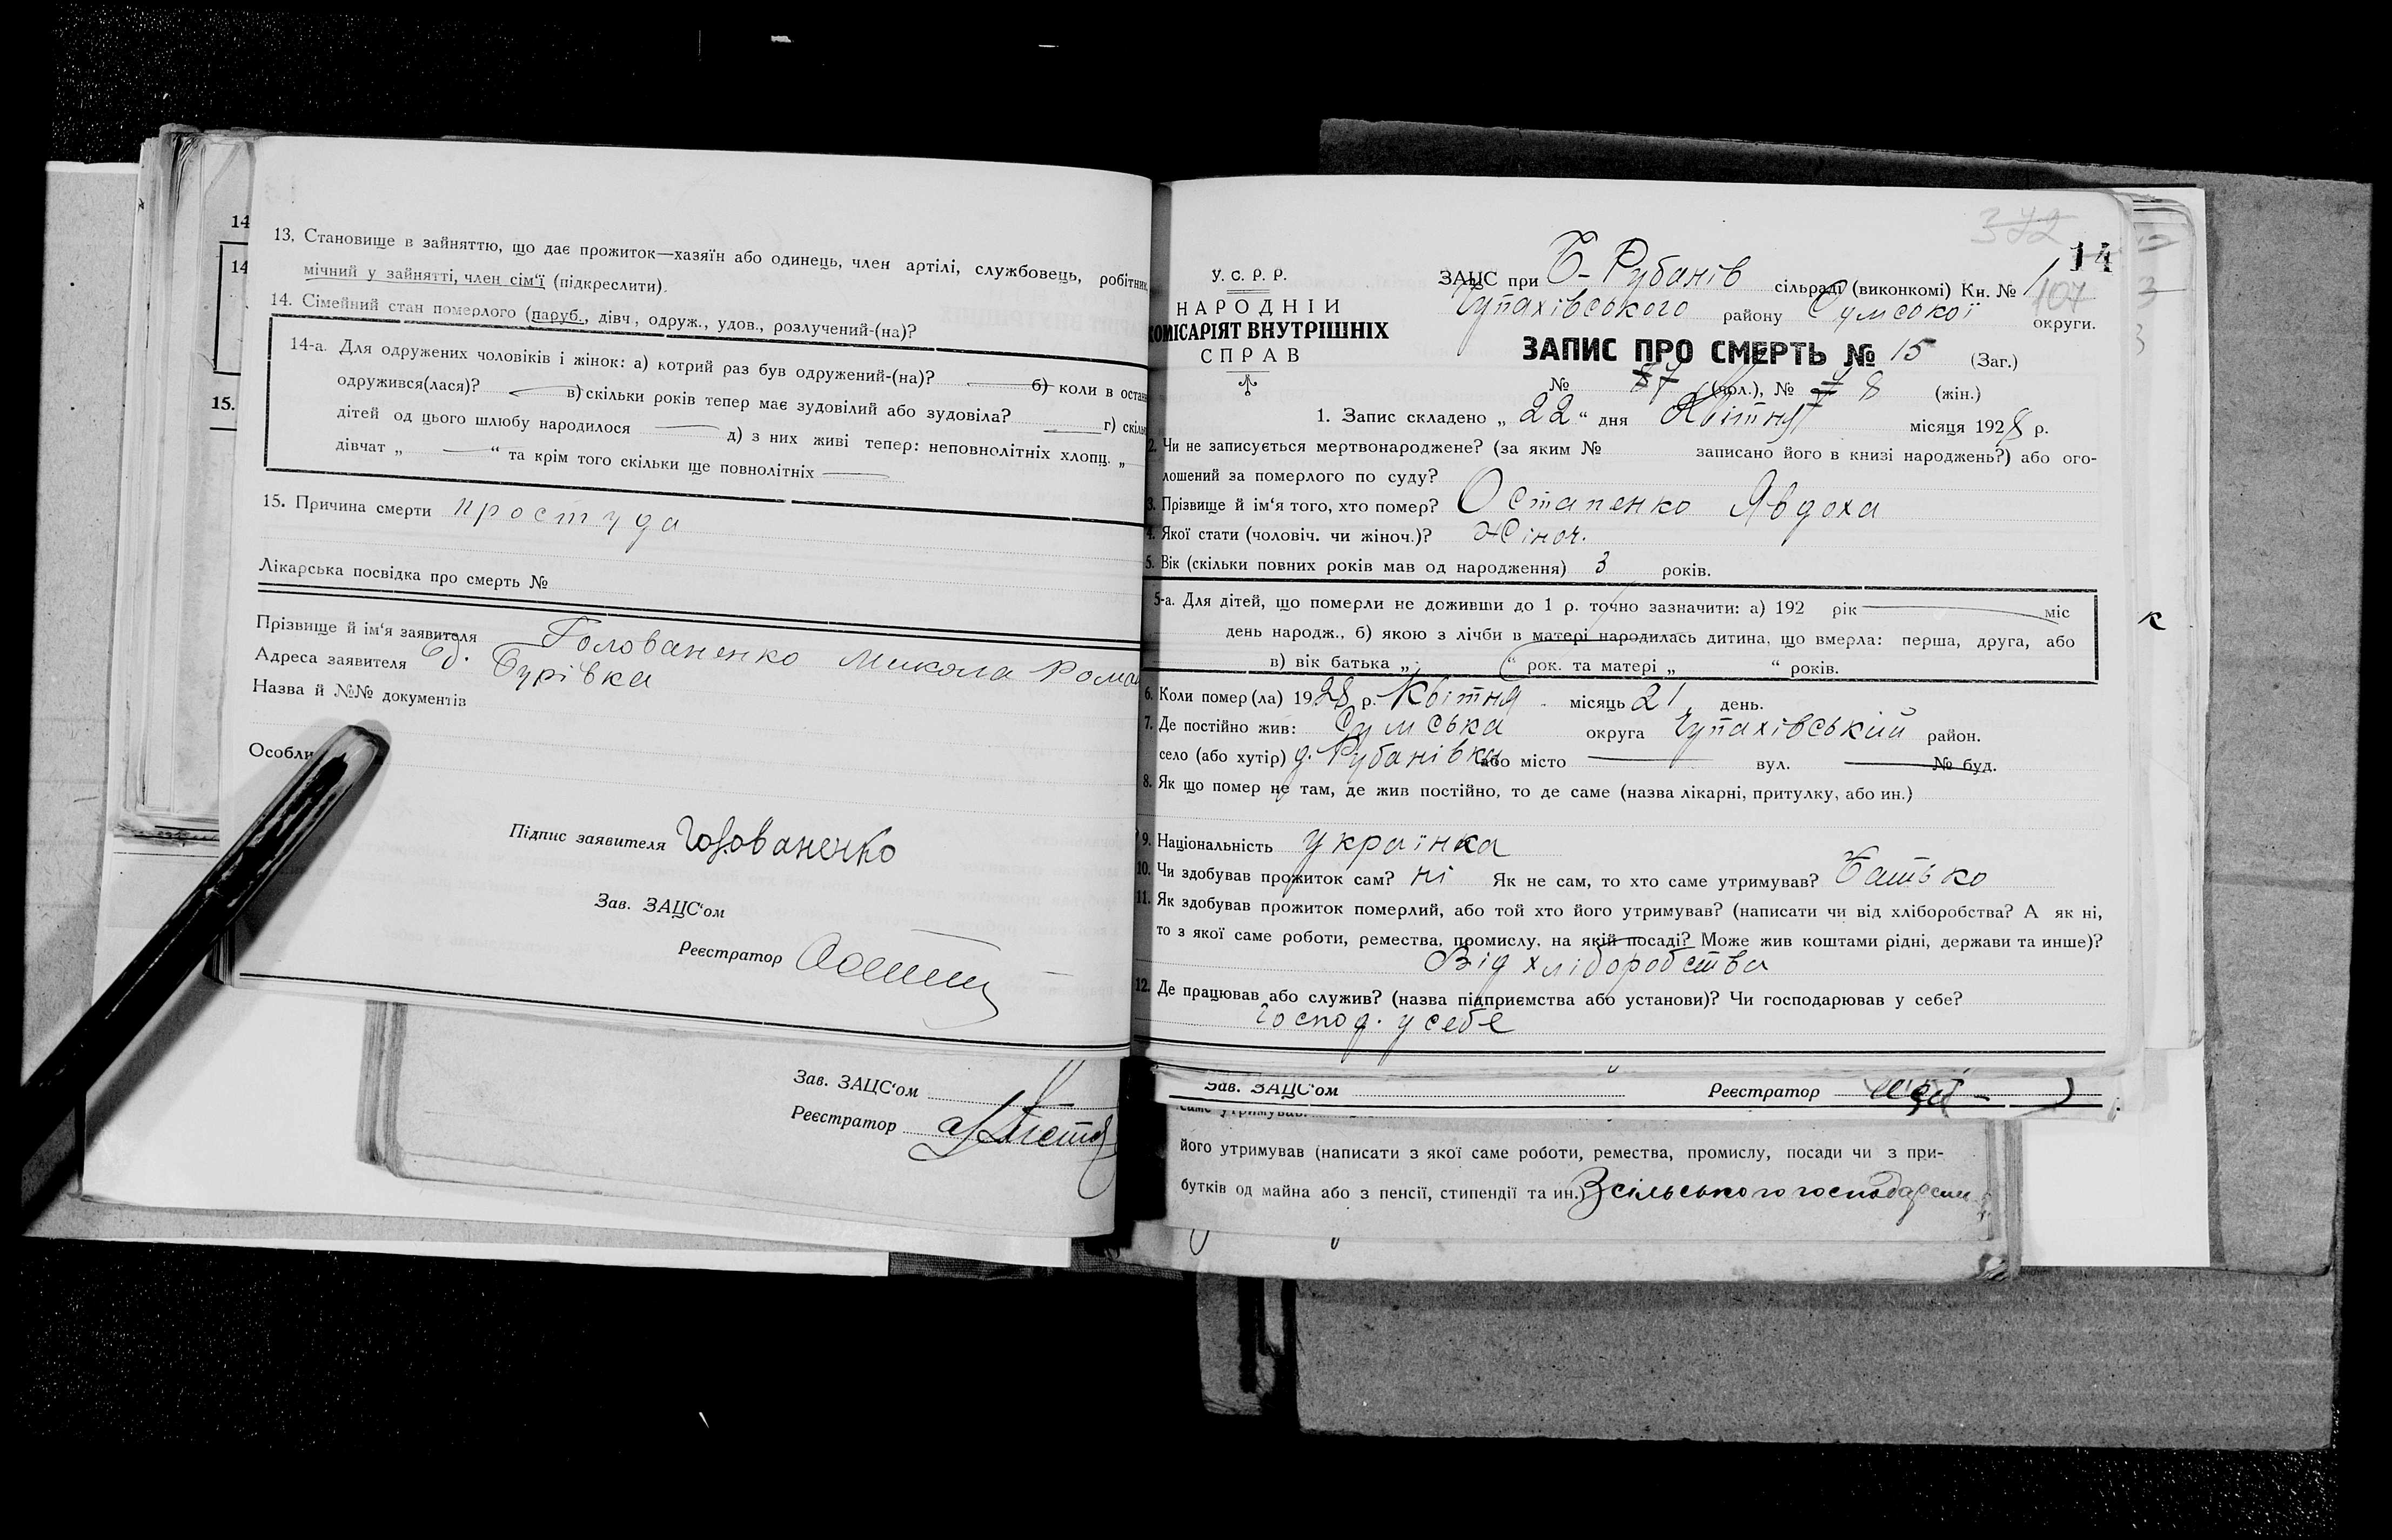 14
14
15.
13. Становище в зайняттю, що дає прожиток—хазяїн або одинець, член артілі, службовець, робітник,
мічний у зайнятті, член сім'ї (підкреслити).
14. Сімейний стан померлого (паруб., дівч., одруж., удов., розлучений-(на)?
14-а. Для одружених чоловіків і жінок: а) котрий раз був одружений-(на)? б) коли в остан
одружився(лася)? в) скільки років тепер має зудовілий або зудовіла? г) скіль
дітей од цього шлюбу народилося д) з них живі тепер: неповнолітніх хлопц. „
дівчат „ “ та крім того скільки ще повнолітніх
15. Причина смерти простуда
Лікарська посвідка про смерть №
Прізвище й ім'я заявителя Голованенко Микола Роман
Адреса заявителя Бурівка
Назва й №№ документів
Особли
Підпис заявителя Голованенко
Зав. ЗАЦС'ом
Реєстратор
Зав. ЗАЦС'ом
Реєстратор
372
14
У. С. Р. Р.
НАРОДНІЙ
КОМІСАРІЯТ ВНУТРІШНІХ
СПРАВ
ЗАЦС при Б-Рубанів сільраді (виконкомі) Кн. № 1
107
Чупахівського району Сумської округи.
ЗАПИС ПРО СМЕРТЬ № 15 (Заг.)
№ 7 (чол.), № 8 (жін.)
1. Запис складено „ 22 “ дня Квітня місяця 1928 р.
2. Чи не записується мертвонароджене? (за яким № записано його в книзі народжень?) або ого-
лошений за померлого по суду?
3. Прізвище й ім'я того, хто помер? Остапенко Явдоха
4. Якої стати (чоловіч. чи жіноч.)? Жіноч.
5. Вік (скільки повних років мав од народження) 3 років.
5-а. Для дітей, що померли не доживши до 1 р. точно зазначити: а) 192 рік міс
день народж., б) якою з лічби в матері народилась дитина, що вмерла: перша, друга, або
в) вік батька „ “ рок. та матері „ “ років.
6. Коли помер(ла) 1928 р. Квітня місяць 21 день.
7. Де постійно жив: Сумська округа Чупахівський район.
село (або хутір) д. Рубанівка або місто вул. № буд.
8. Як що помер не там, де жив постійно, то де саме (назва лікарні, притулку, або ин.)
9. Національність українка
10. Чи здобував прожиток сам? ні Як не сам, то хто саме утримував? Батько
11. Як здобував прожиток померлий, або той хто його утримував? (написати чи від хліборобства? А як ні,
то з якої саме роботи, ремества, промислу, на якій посаді? Може жив коштами рідні, держави та инше)?
Від хліборобства
12. Де працював або служив? (назва підприємства або установи)? Чи господарював у себе?
Господ. у себе
Зав. ЗАЦС'ом Реєстратор
саме утримував.
його утримував (написати з якої саме роботи, ремества, промислу, посади чи з при-
бутків од майна або з пенсії, стипендії та ин.) З сільського господарств